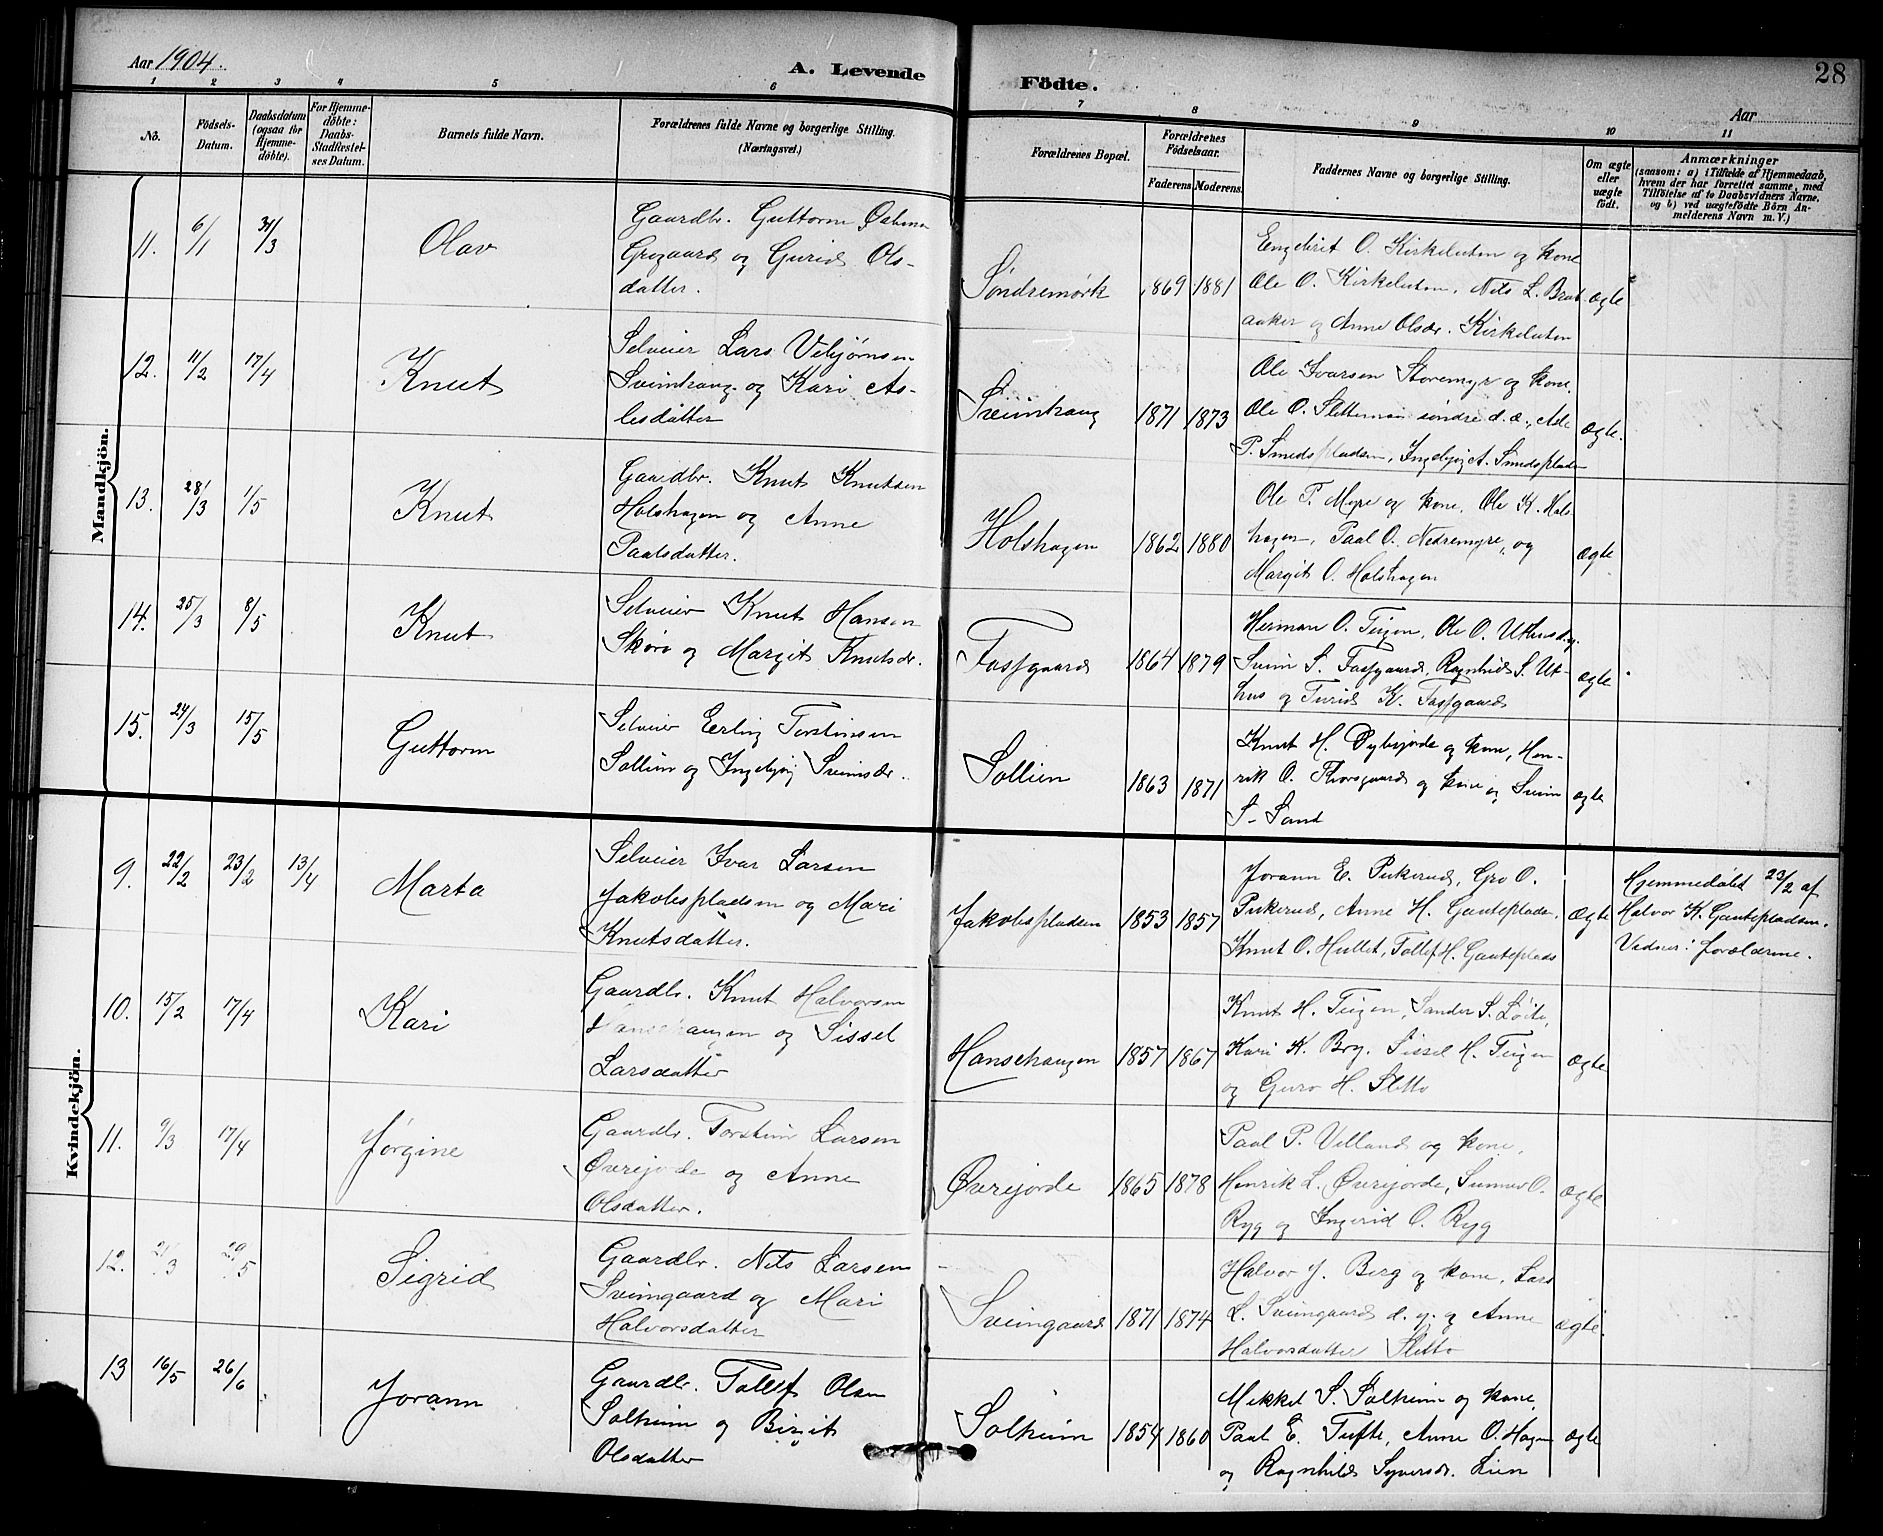 Aar 1904.
A. Levende Födte.
28
Aar
1 2 3 4 5 6 7 8 9 10 11
No.
Födsels-Datum.
Daabsdatum (ogsaa for Hjemme-döbte).
For Hjemme-döbte: Daabs-Stadfæstel-ses Datum.
Barnets fulde Navn.
Forældrenes fulde Navne og borgerlige Stilling. (Næringsvei.)
Forældrenes Bopæl.
Forældrenes Födselsaar.
Faderens. Moderens.
Faddernes Navne og borgerlige Stilling.
Om ægte eller uægte födt.
Anmærkninger
(saasom: a) i Tilfælde af Hjemmedaab,
hvem der har forrettet samme, med
Tilföielse af to Daabsvidners Navne,
og b) ved uægtefödte Börn An-
melderens Navn m. V.)
Mandkjön.
11. 6/1 Olav
Gaardbr. Guttorm
og Gurid Ols-
datter.
Søndremørk 1869 1881
Engebrit O. Kirkeluten og kone
Ole O. Kirkeluten, Nils L. Brat-
aaker og Anne Olsdr. Kirkeluten
ægte
12. 11/2 17/4 Knut
Selveier Lars
Sveinhaug og Kari As-
lesdatter
Sveinhaug 1871 1873
Ole Ivarsen Storemyr og kone,
Ole O. Slettemoen søndre d.æ., Asle
P. Smedspladsen, Ingebjørg A. Smedspladsen
ægte.
13. 28/3 1/5 Knut
Gaardbr. Knut Knutsen
Holshagen og Anne
Paalsdatter.
Holshagen 1862 1880
Ole P. Myre og kone, Ole K. Hols-
hagen, Paal O. Nedremyre, og
Margit O. Holshagen
ægte
14. 25/3 8/5 Knut
Selveier Knut Hansen
Skøro og Margit Knutsdr.
Fossgaard 1864 1879
Herman O. Teigen, Ole O. Uthus d.y.
Svein S. Fossgaard, Ragnhild S. Ut-
hus og Turid K. Fossgaard
ægte
15. 24/3 15/5 Guttorm
Selveier Erling Torsteinsen
Sollien og Ingebjørg Sveinsdr.
Sollien 1863 1871
Knut H. Øybsjorde og kone, Hen-
rik O. Thorsgaard og kone og Svein
S. Sand
ægte
Kvindekjön.
9. 22/2 23/2 13/4 Marta
Selveier Ivar Larsen
Jakobspladsen og Mari
Knutsdatter.
Jakobspladsen 1853 1857
Jorann E. Pukerud, Gro O.
Pukerud, Anne H. Gauteplads,
Knut O. Hullet, Tollef H. Gauteplads
Ægte
Hjemmedøbt 23/2 af
Halvor K. Gautepladsen.
Vidner: forældrene.
10. 15/2 17/4 Kari
Gaardbr. Knut Halvorsen
Hansehaugen og Sissel
Larsdatter
Hansehaugen 1857 1867
Knut H. Teigen, Sander S. Løite,
Kari K. Bry, Sissel H. Teigen
og Guro H. Sletto
ægte
11. 9/3 17/4 Jørgine
Gaardbr. Torstein Larsen
Øvrejorde og Anne
Olsdatter.
Øvrejorde 1865 1878
Paal P. Villand og kone,
Henrik L. Øvrejorde, Sunnev O.
Ryg og Ingerid O. Ryg
ægte
12. 21/3 29/5 Sigrid
Gaardbr. Nils Larsen
Sveingaard og Mari
Halvorsdatter
Sveingaard 1871 1874
Halvor J. Berg og kone, Lars
L. Sveingaard d.y. og Anne
Halvorsdatter Sletto
ægte.
13 16/5 26/6 Jorann
Gaardbr. Tollef Olsen
Solheim og Birgit
Olsdatter
Solheim 1854 1860
Mikkel S. Solheim og kone,
Paul E. Tufte, Anne O. Hagen
og Ragnhild Syversdr. Lien
ægte